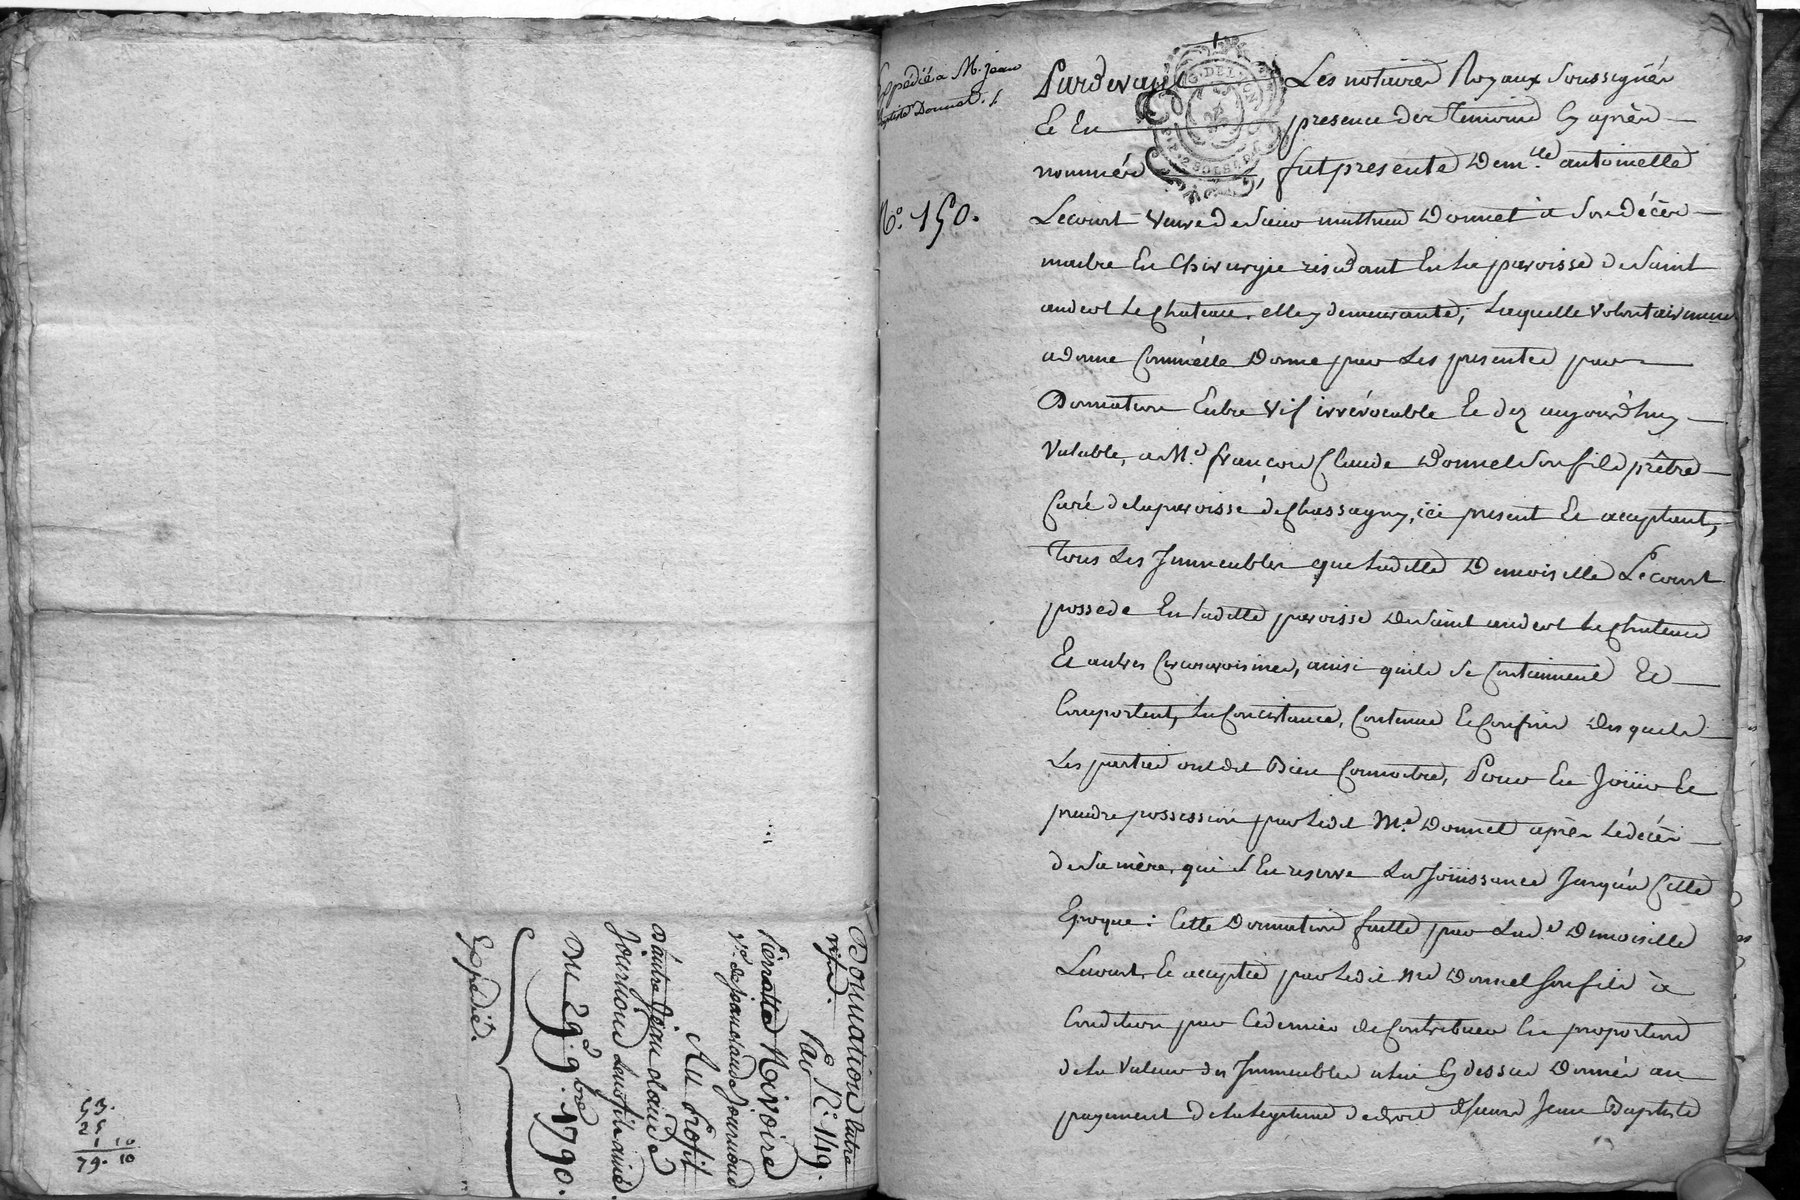 Donnation Entre
vifs.
Par N.° 149.
Pierrotte Mivoire
v.e de jean claude journoud
Au Profit
D'autre jean claude
journoud son fils ainé.
Du 29.e 9.bre 1790.
Expédié.
53.
25
1 10
79. 10
Expédié a M. jean
Baptiste Donnet./.
N.° 150.
Pardevant Les notaires Royaux soussignés
Et En presence des temoins cy après
nommés, fut presente Dem.lle antoinette
Lecourt veuve de sieur mathieu Donnet à son décès
maitre En Chirurgie residant En La paroisse de saint
andeol Le Chateau, elle y demeurante; Laquelle volontairement
a donné Comm'elle Donne par Les presentes par
Donnation Entre vif irrévocable Et dez aujourd'huy
valable, a M.e françois Claude Donnet son fils prêtre
Curé de la paroisse de Chassagny, ici present Et acceptant,
Tous Les Immeubles que Ladite Demoiselle Lecourt
possede En Ladite paroisse De saint andeol Le Chateau
Et autres Circonvoisines, ainsi qu'ils se Contiennent Et
Comportent, La Concistance, Contenue Et Confins Desquels
Les parties ont dit Bien Connoitre, Pour En Joüir Et
prendre possession par Ledit M.e Donnet après Le décès
de sa mère, qui s'En reserve La Joüissance Jusqu'à Cette
Epoque: Cette Donnation faitte par Lad.e Demoiselle
Lecourt, Et acceptée par Ledit M.e Donnet son fils à
Condition par Ce dernier de Contribuer En proportion
de La valeur des Immeubles a lui Cy dessus Donnés au
payement de La Legitime de droit de sieur Jean Baptiste